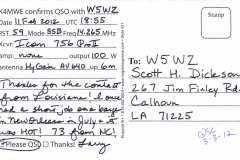 K4MWE confirms QSO with W5WZ
Date 11 Feb 2012 UTC 18:55
RST 59 Mode SSB Freq 14.265 MHz
Xcvr: Icom 756 Pro II
Amp: none output 100 W
Antenna HyGain AV640 up 6m
Thanks for the contact
from Louisiana! I love
had a short job on a boy
in New Orleans in July +
was HOT! 73 from NC!
Please QSL Thanks! Larry
Stamp
To: W5WZ
Scott H. Dickson
267 Jim Finley Rd.
Calhoun
LA 71225
QSL
3-3-12